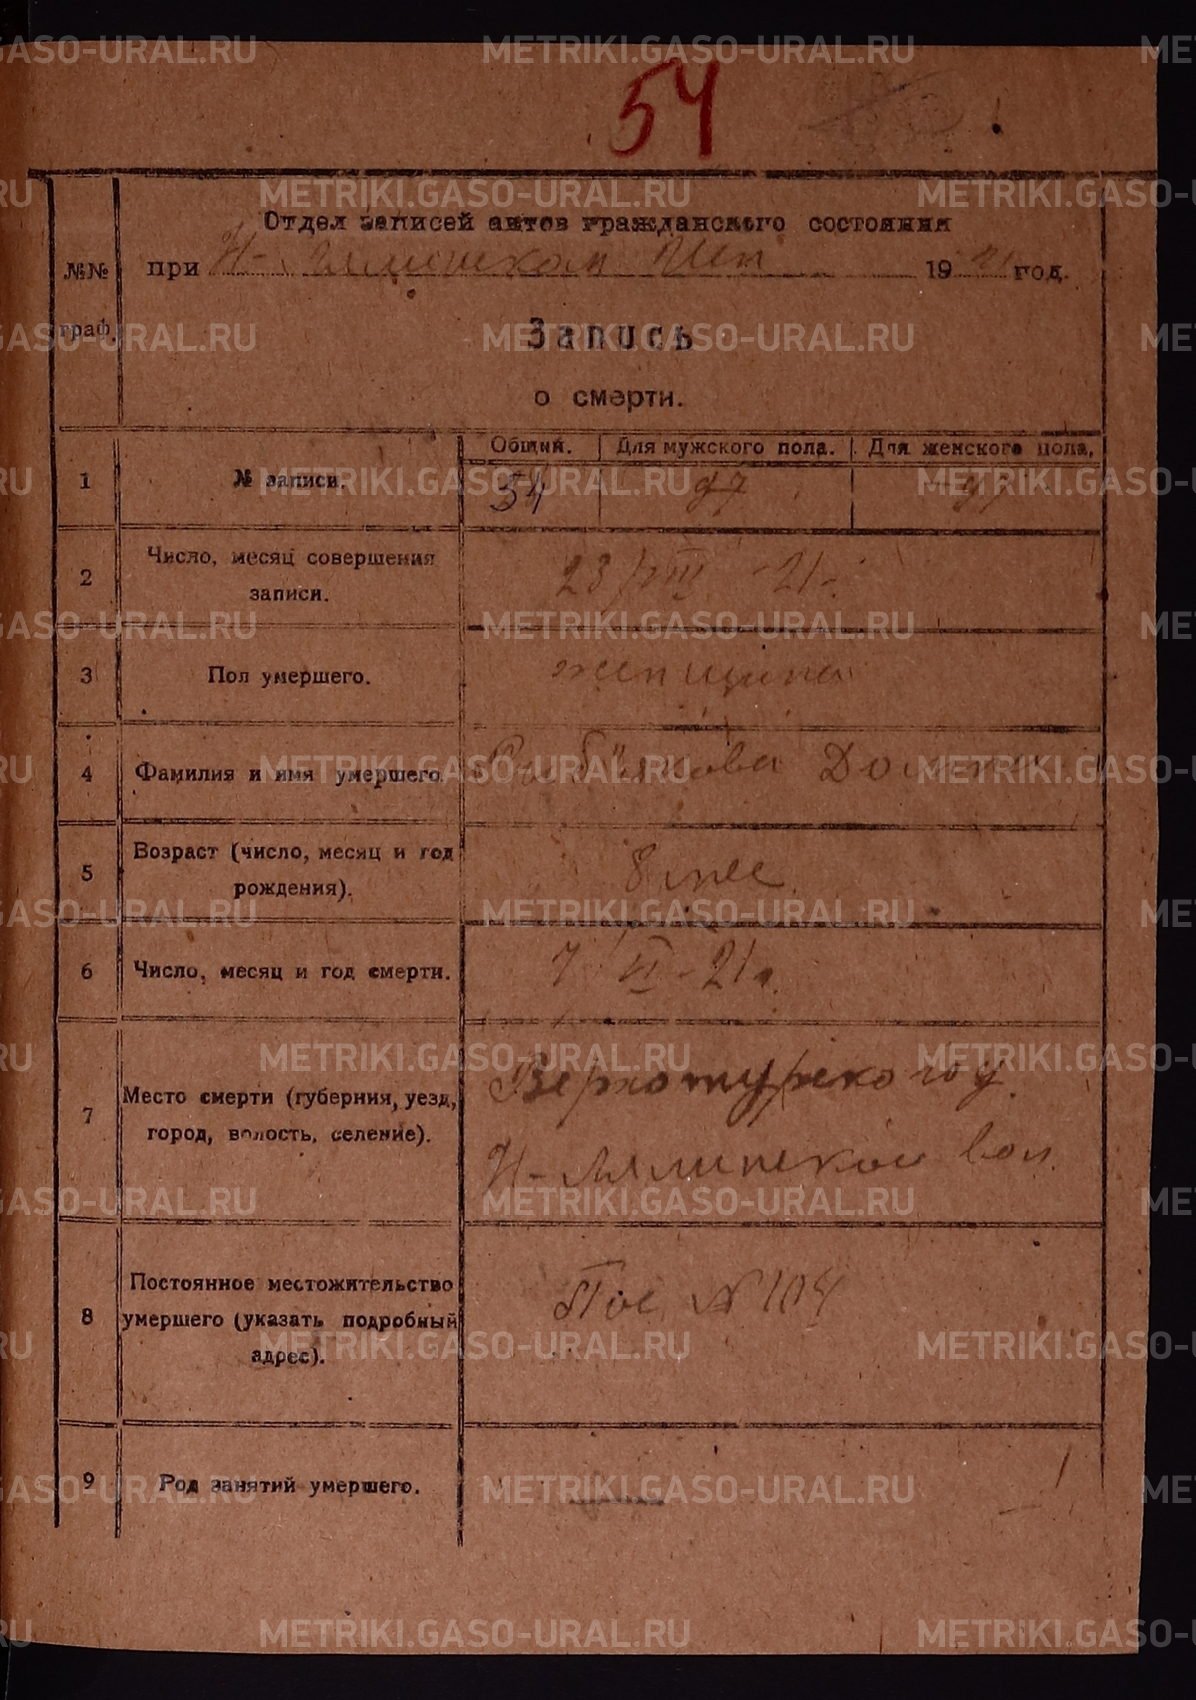 54
Отдел записей актов гражданского состояния
№№ граф.
при Н-Лялинском 1921 год.
Запись
о смерти.
Общий. Для мужского пола. Для женского пола.
1 № записи. 54
2 Число, месяц совершения
записи. 23/VIII-21.
3 Пол умершего. женщина
4 Фамилия и имя умершего.
5 Возраст (число, месяц и год
рождения). 8 мес
6 Число, месяц и год смерти. 7 VI-21г.
7 Место смерти (губерния, уезд,
город, волость, селение).
Верхотурского у.
Н-Лялинской вол.
8 Постоянное местожительство
умершего (указать подробный
адрес).
Пос №104
9 Род занятий умершего.
METRIKI.GASO-URAL.RU